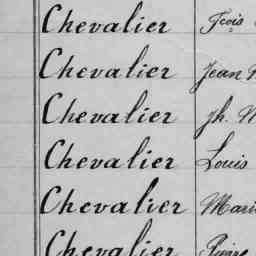 Chevalier Fçois
Chevalier Jean
Chevalier Jh.
Chevalier Louis
Chevalier Marie
Chevalier Pierre